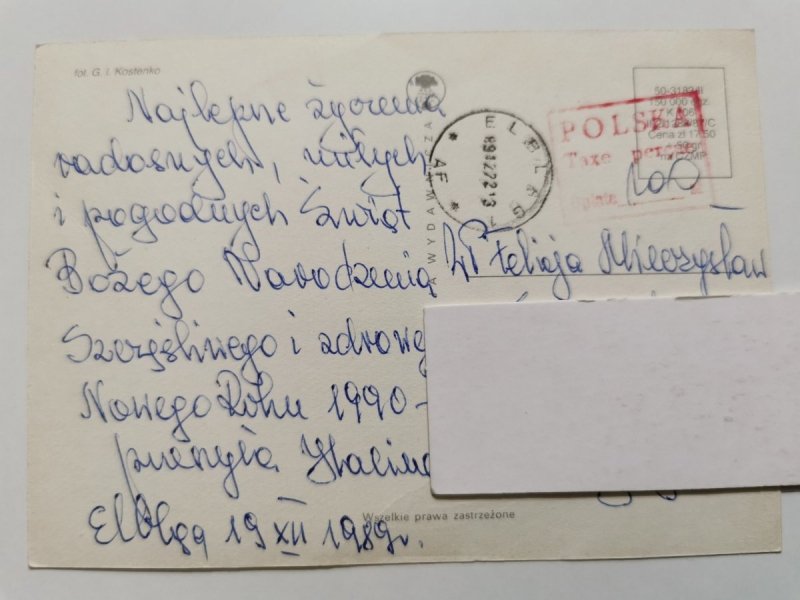 fot. G. I. Kostenko
Najlepsze życzenia
radosnych, miłych
i pogodnych Świąt
Bożego Narodzenia
Szczęśliwego i zdrowego
Nowego Roku 1990 -
przesyła Halina
Elbląg 19 XII 1989r.
WYDAWNICZA
ELBLĄG 1
* AF *
POLSKA
Taxe perçue
200
50-3182/II
150 000 egz.
Cena zł 17,50
WP Felicja Mieczysław
Wszelkie prawa zastrzeżone